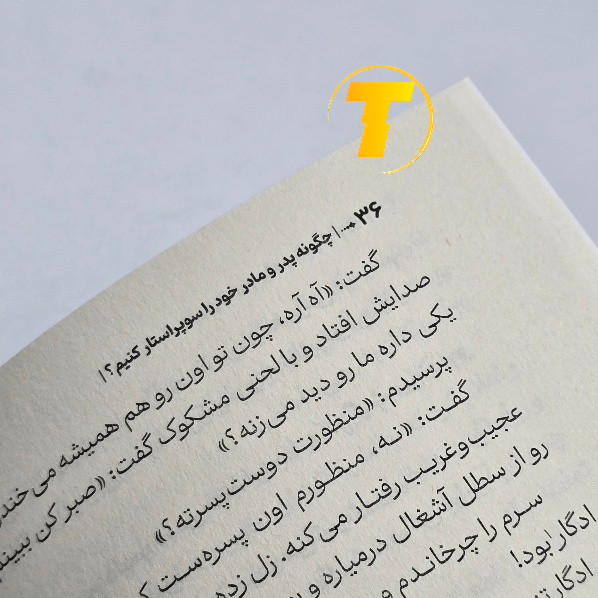 T
۳۶ ⇠ | چگونه پدر و مادر خود را سوپراستار کنیم؟ |
گفت: «آه آره، چون تو اون رو هم همیشه می
صدایش افتاد و با لحنی مشکوک گفت: «صبر کن
یکی داره ما رو دید می‌زنه؟»
پرسیدم: «منظورت دوست‌پسرته؟»
گفت: «نه، منظورم اون پسره‌ست
عجیب‌وغریب رفتار می‌کنه. زل زده
رو از سطل آشغال درمیاره و
سرم را چرخاندم و
ادگار بود!
ادگار